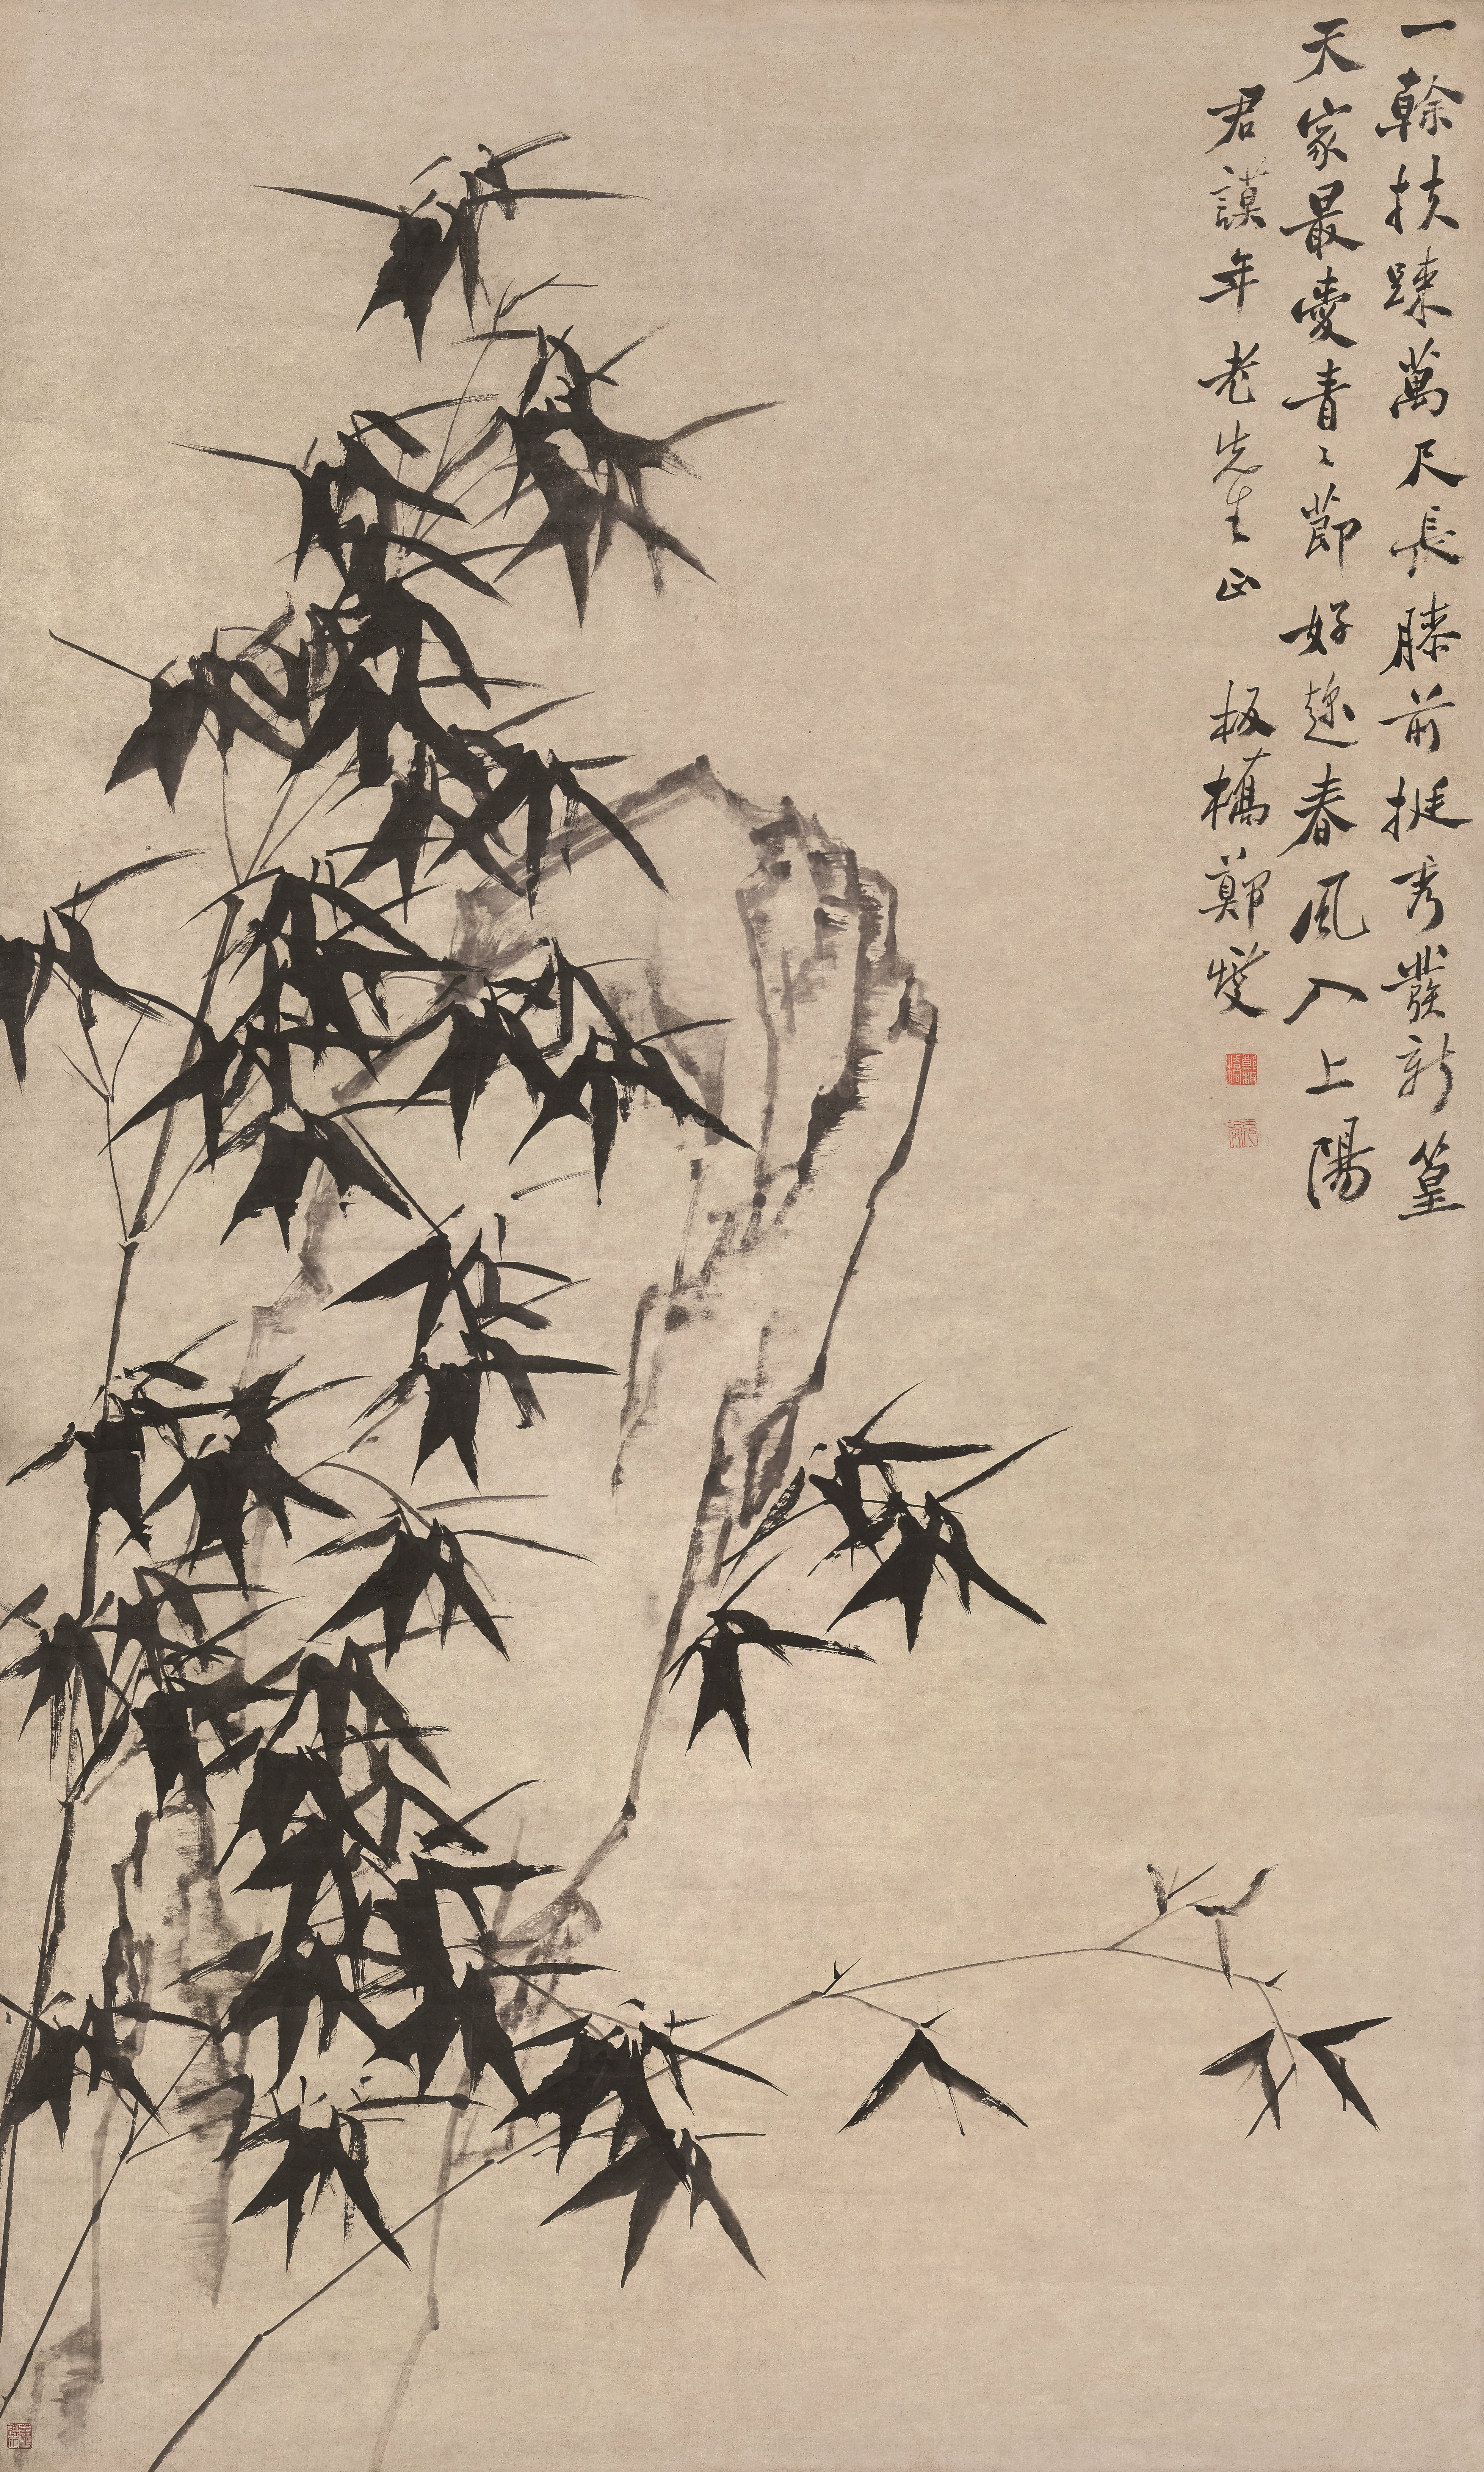 一榦扶踈萬尺長膝前挺秀發新篁
天家最愛青〻節好趂春風入上陽
君謨年老先生正　板橋鄭燮